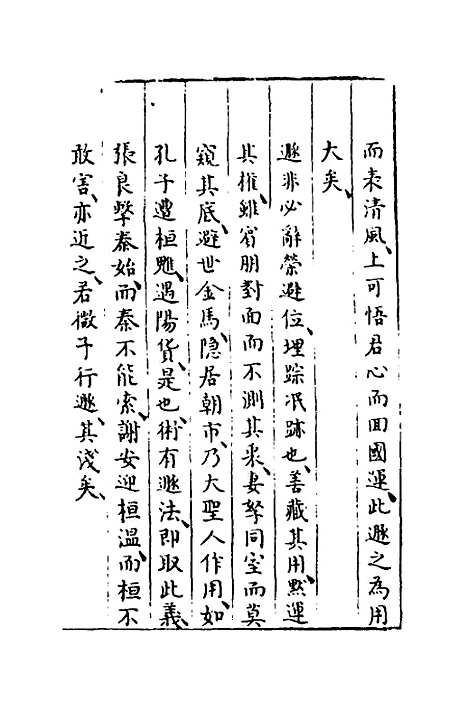 而表清風、上可悟君心而回國運、此遯之為用
大矣、
遯非必辭榮避位、埋踪泯跡也、善藏其用、默運
其權、雖賓朋對面而不測其來、妻孥同室而莫
窺其底、避世金馬、隐居朝市、乃大聖人作用、如
孔子遭桓魋、遇陽貨、是也、術有遯法、即取此義、
張良擊秦始、而秦不能索、謝安迎桓溫、而桓不
敢害、亦近之、若微子行遯、其淺矣、